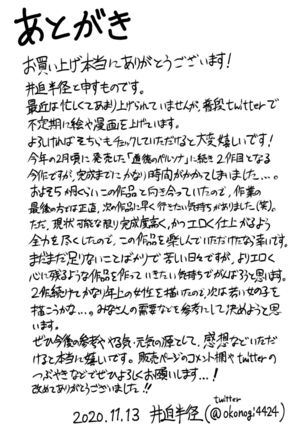 あとがき
お買い上げ本当にありがとうございます！
井迫半径と申すものです。
最近は忙しくてあまり上げられていませんが、普段twitterで
不定期に絵や漫画を上げています。
よろしければそちらもチェックしていただけると大変嬉しいです！
今年の2月頃に発売した「直後のペルソナ」に続き2作目となる
今作ですが、完成までにかなり時間がかかってしまいました…。
およそ5か月くらいこの作品と向き合っていたので、作業の
最後の方では正直、次の作品に早く行きたい気持ちがありました(笑)。
ただ、現状可能な限り完成度高く、かつエロく仕上がるよう
全力を尽くしたので、この作品を楽しんでいただけたなら幸いです。
まだまだ足りないことばかりで苦しい日々ですが、よりエロく
心に残るような作品を作っていきたい気持ちでがんばろうと思います。
2作続けてかなり年上の女性を描いたので、次は若い女の子を
描こうかな…。みなさんの需要などを参考にして決めようと思
います。
ぜひ今後の参考ややる気・元気の源として、感想などいただ
けると本当に嬉しいです。販売ページのコメント欄やtwitterの
つぶやきなどでぜひよろしくお願いします…！
改めてありがとうございました!!
2020.11.13 井迫半径(@okonogi4424)
twitter